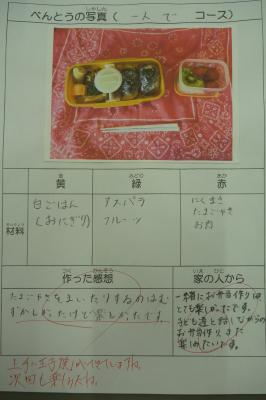 べんとうの写真（ 一人で コース）
しゃしん
き
黄
みどり
緑
あか
赤
ざいりょう
材料
白ごはん
(おにぎり)
アスパラ
フルーツ
にくまき
たまごやき
お肉
つく かんそう
作った感想
いえ ひと
家の人から
たまごやきをまいたりするのはむ
ずかしかったけど楽しかったです。
一緒にお弁当作りは
とても楽しかったです。
子ども達と話しながらの
お弁当作りまた
楽しみたいです。
上手に玉子焼
次回も楽しみだね。